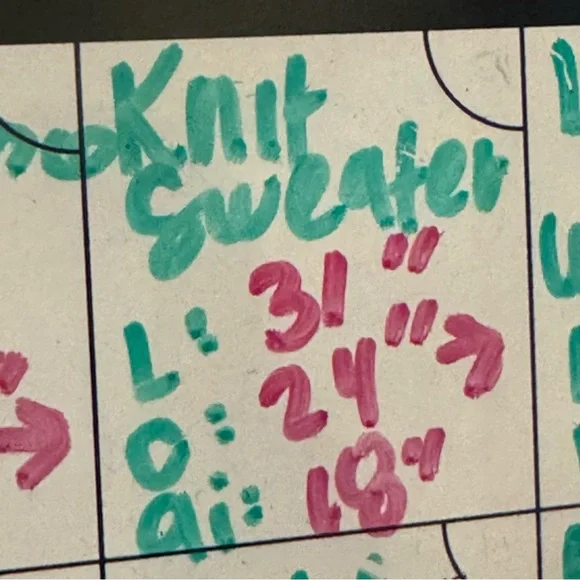 Knit
Sweater
L: 31"
O: 24" →
ai: 18"